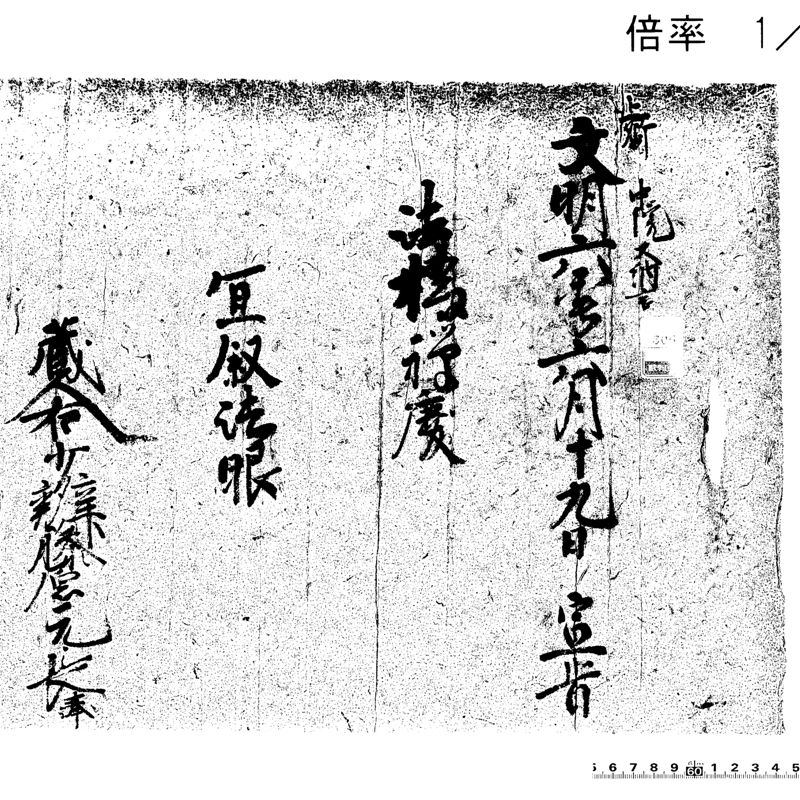 倍率 1/
中院大納言
文明六年六月十九日 宣旨
法橋禅慶
宜叙法眼
蔵人右少辨藤原元長奉
5 6 7 8 9 60 1 2 3 4 5